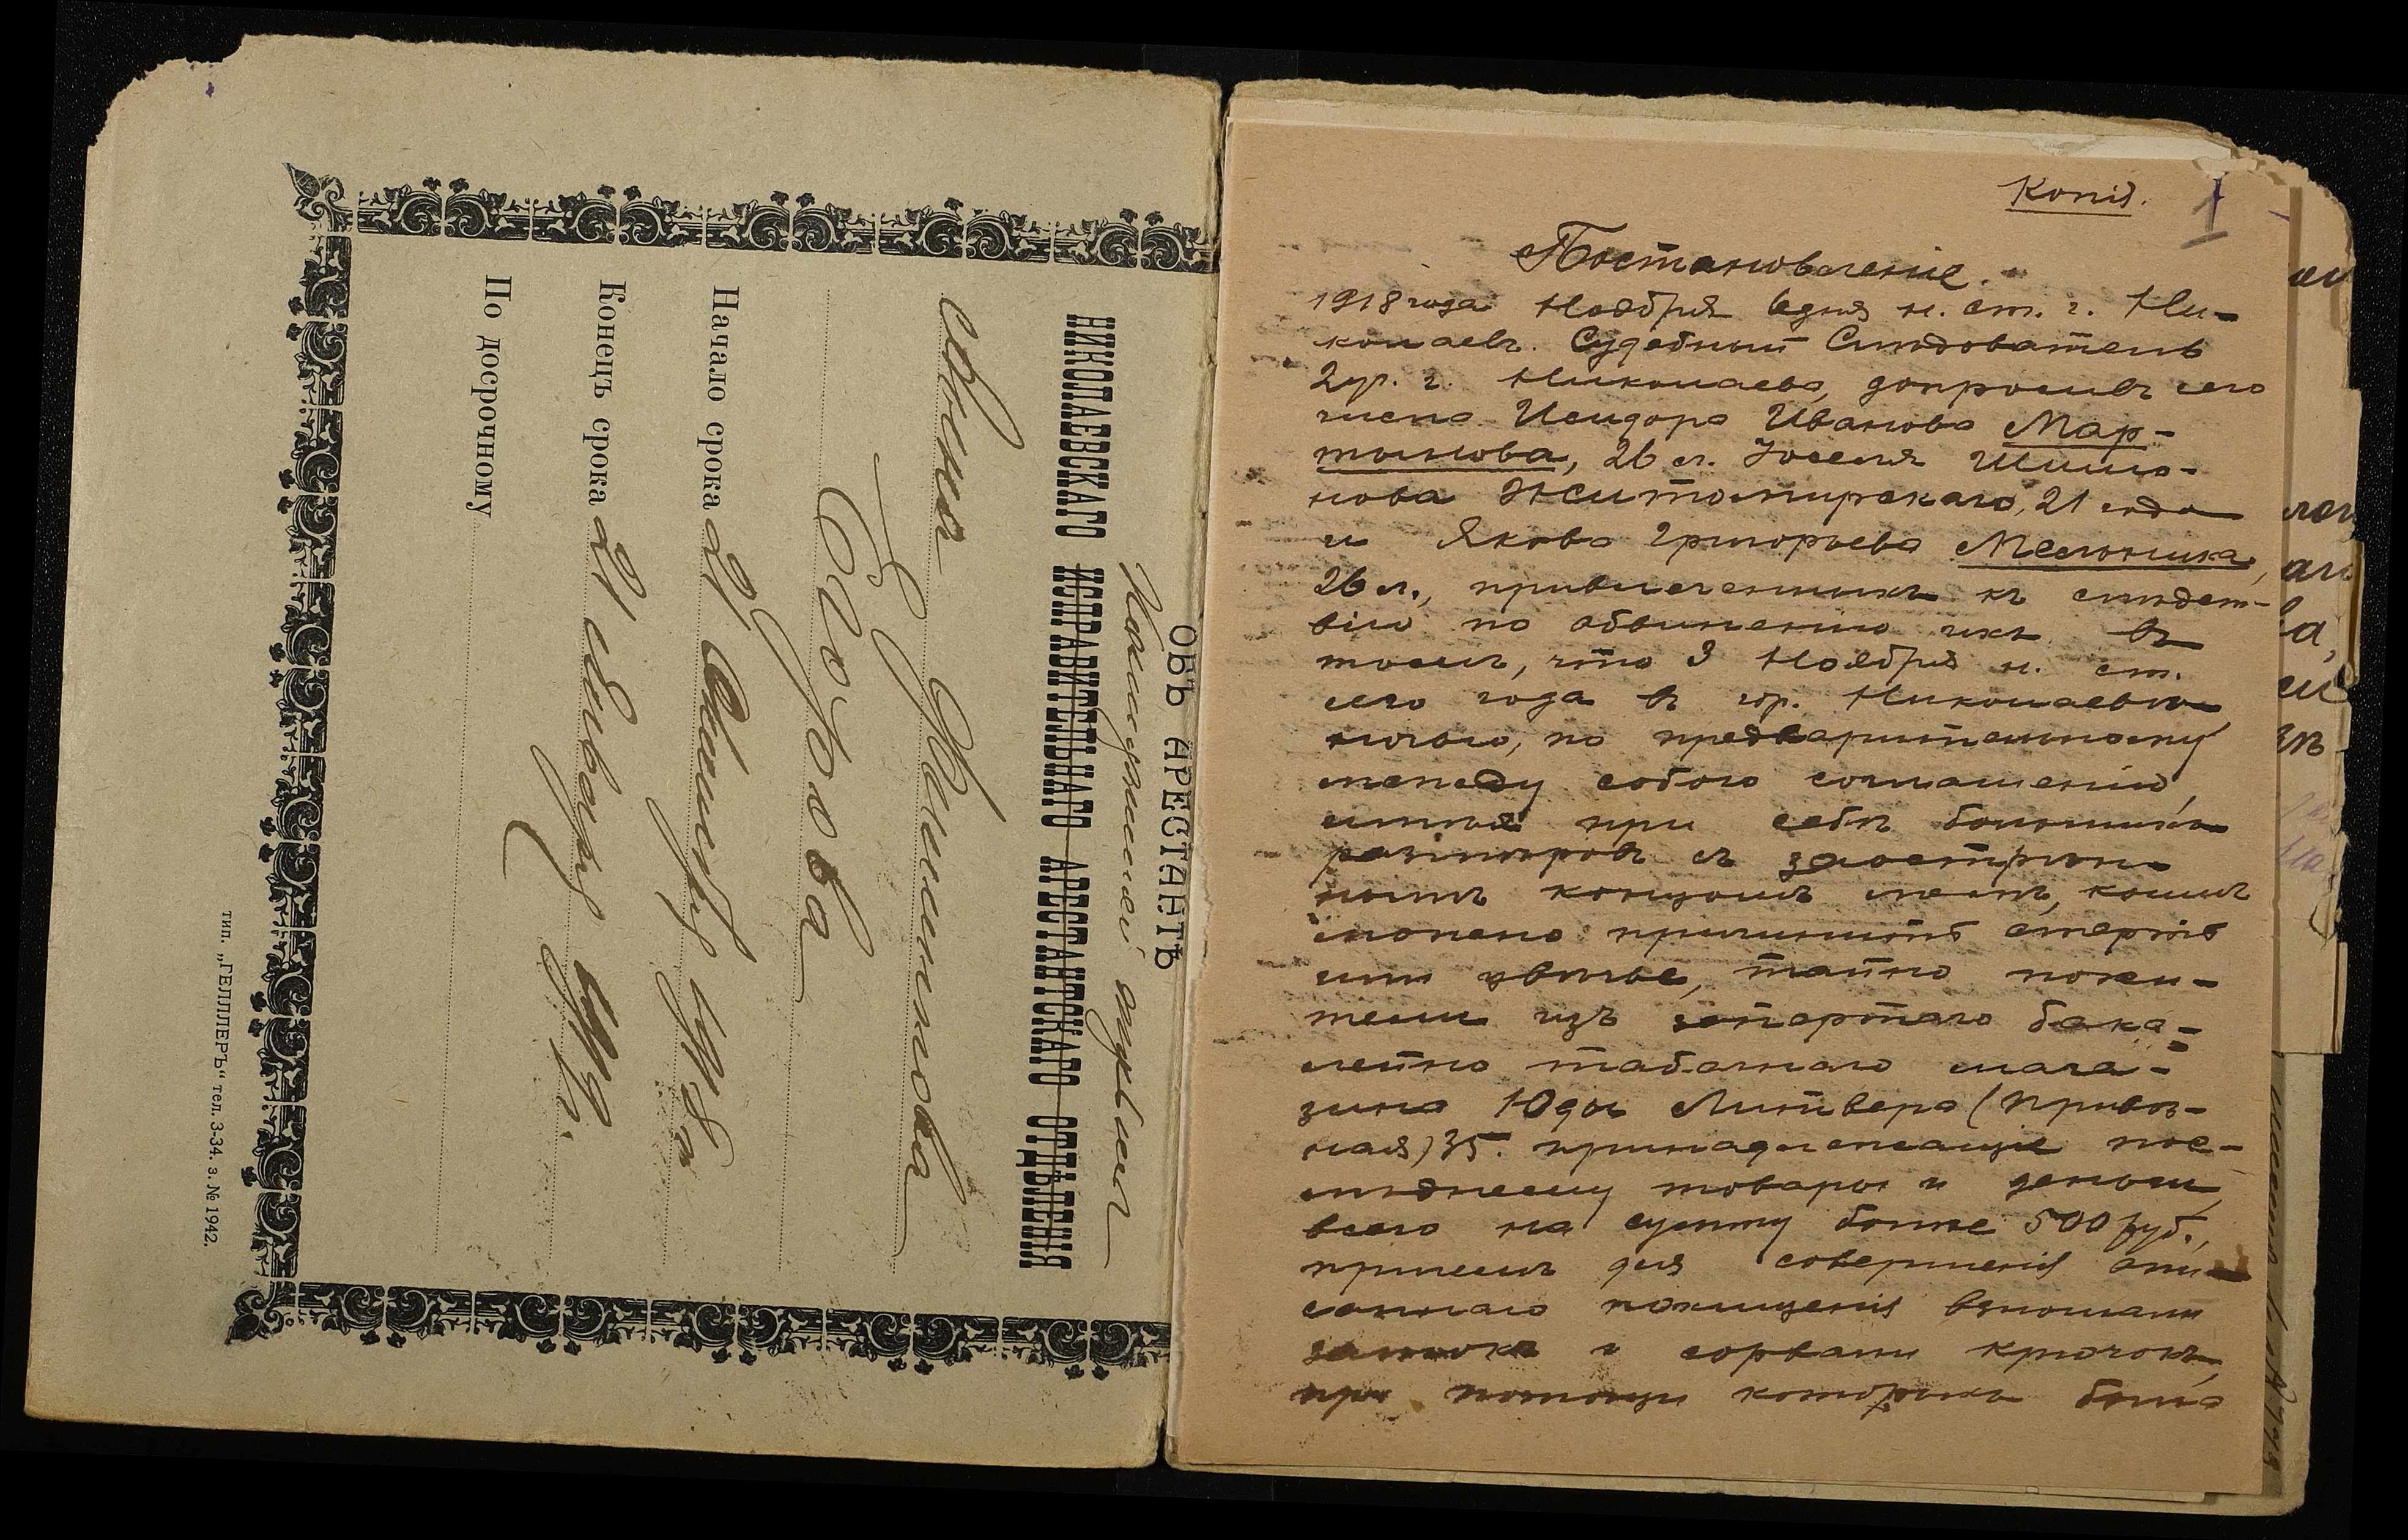 ОБЪ АРЕСТАНТѢ
Каторжной тюрьмы
НИКОЛАЕВСКАГО ИСПРАВИТЕЛЬНАГО АРЕСТАНТСКАГО ОТДѢЛЕНІЯ
Начало срока 21
Конецъ срока 21
По досрочному
тип. „ГЕЛЛЕРЪ“ тел. 3-34. з. № 1942.
Копія.
1
Постановленіе.
1918 года Ноября 6 дня н. ст. г. Ни-
колаевъ. Судебный Слѣдователь
2 уч. г. Николаева, допросивъ сего
числа Исидора Иванова Мар-
тынова, 26 л. Іоселя Шимо-
нова Житомирскаго, 21 года
и Якова Григорьева Мельника,
26 л., привлеченныхъ къ слѣдст-
вію по обвиненію ихъ въ
томъ, что 3 Ноября н. ст.
сего года въ гор. Николаевѣ
ночью, по предварительному
между собою соглашенію,
имѣя при себѣ большихъ
размѣровъ съ заострен-
нымъ концомъ ломъ, коимъ
можно причинить смерть
или увѣчье, тайно похи-
тили изъ запертаго бака-
лейно табачнаго мага-
зина Юды Литвера (Привоз-
ная) 35. принадлежащіе пос-
лѣднему товары и деньги,
всего на сумму болѣе 500 руб.,
причемъ для совершенія опи-
саннаго похищенія взломали
замокъ и сорвали крючокъ,
при помощи которыхъ была